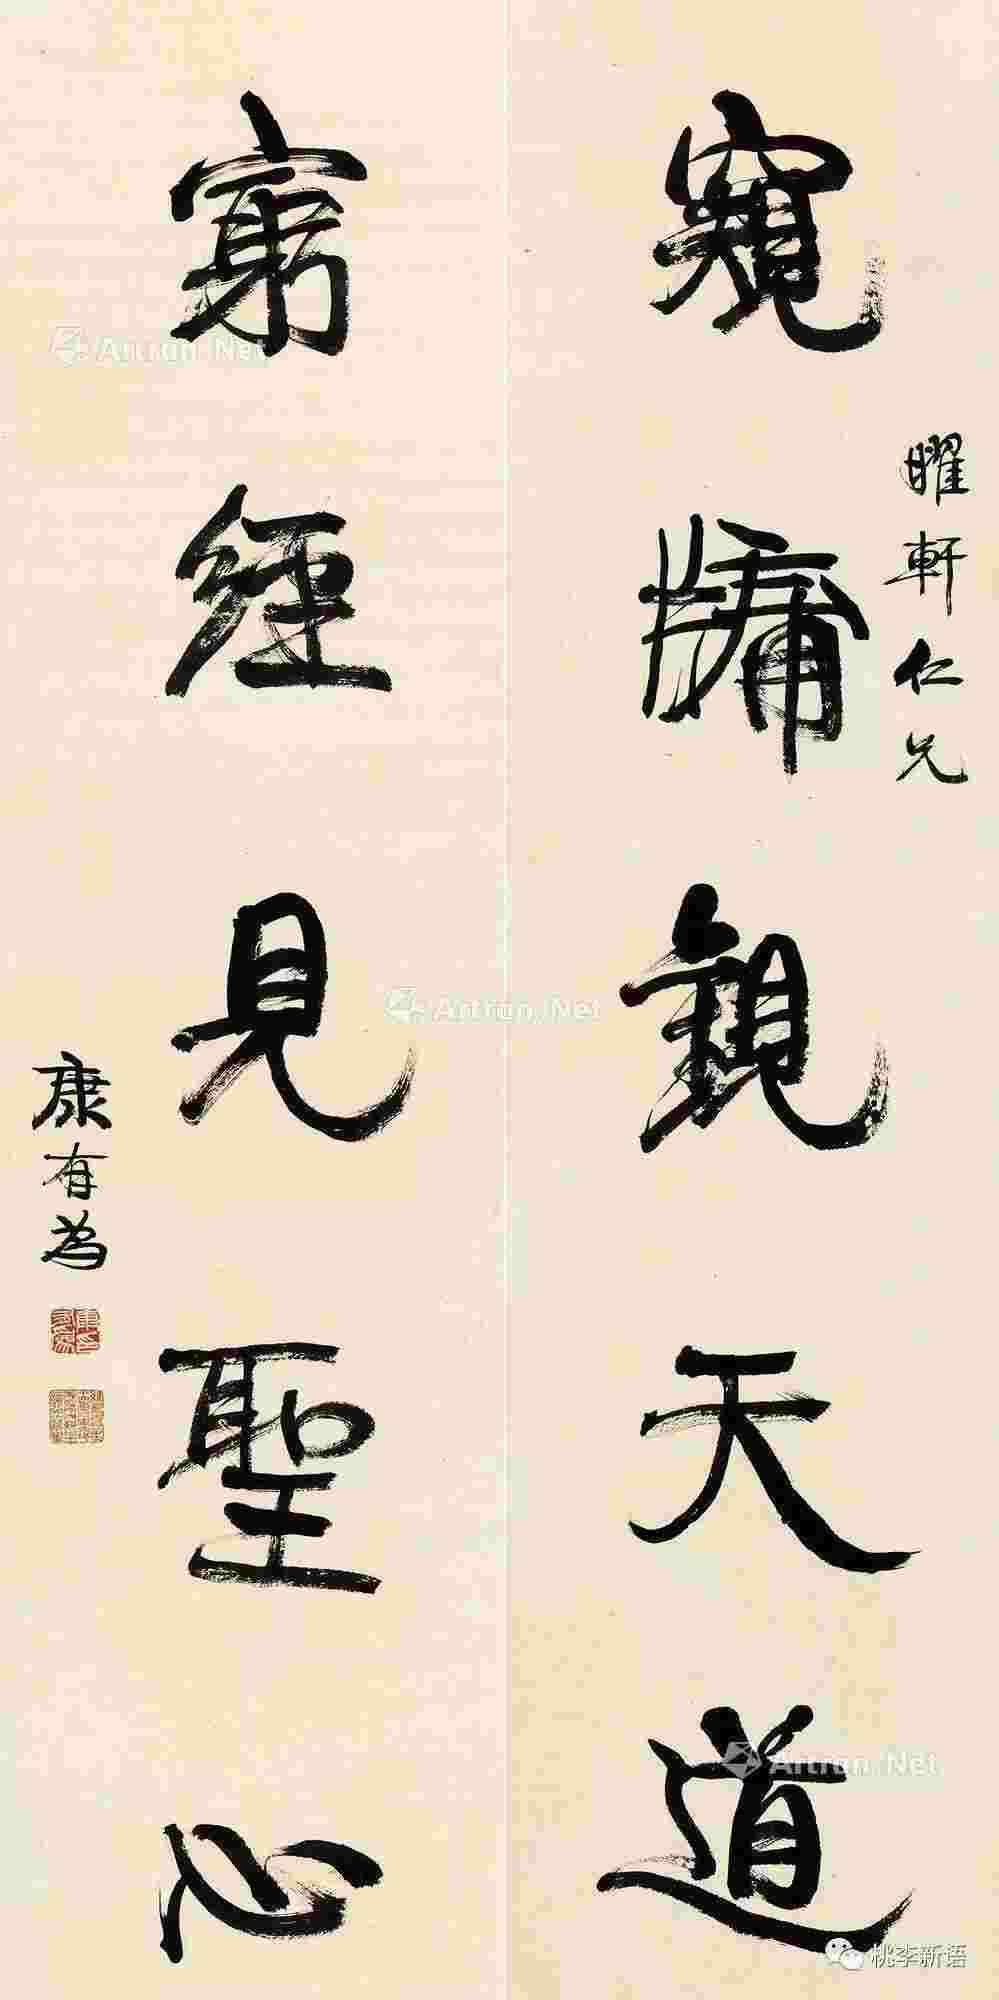 曜軒仁兄
窺牖觀天道
窮經見聖心
康有為
Artron.Net
Artron.Net
Artron.Net
桃李新语